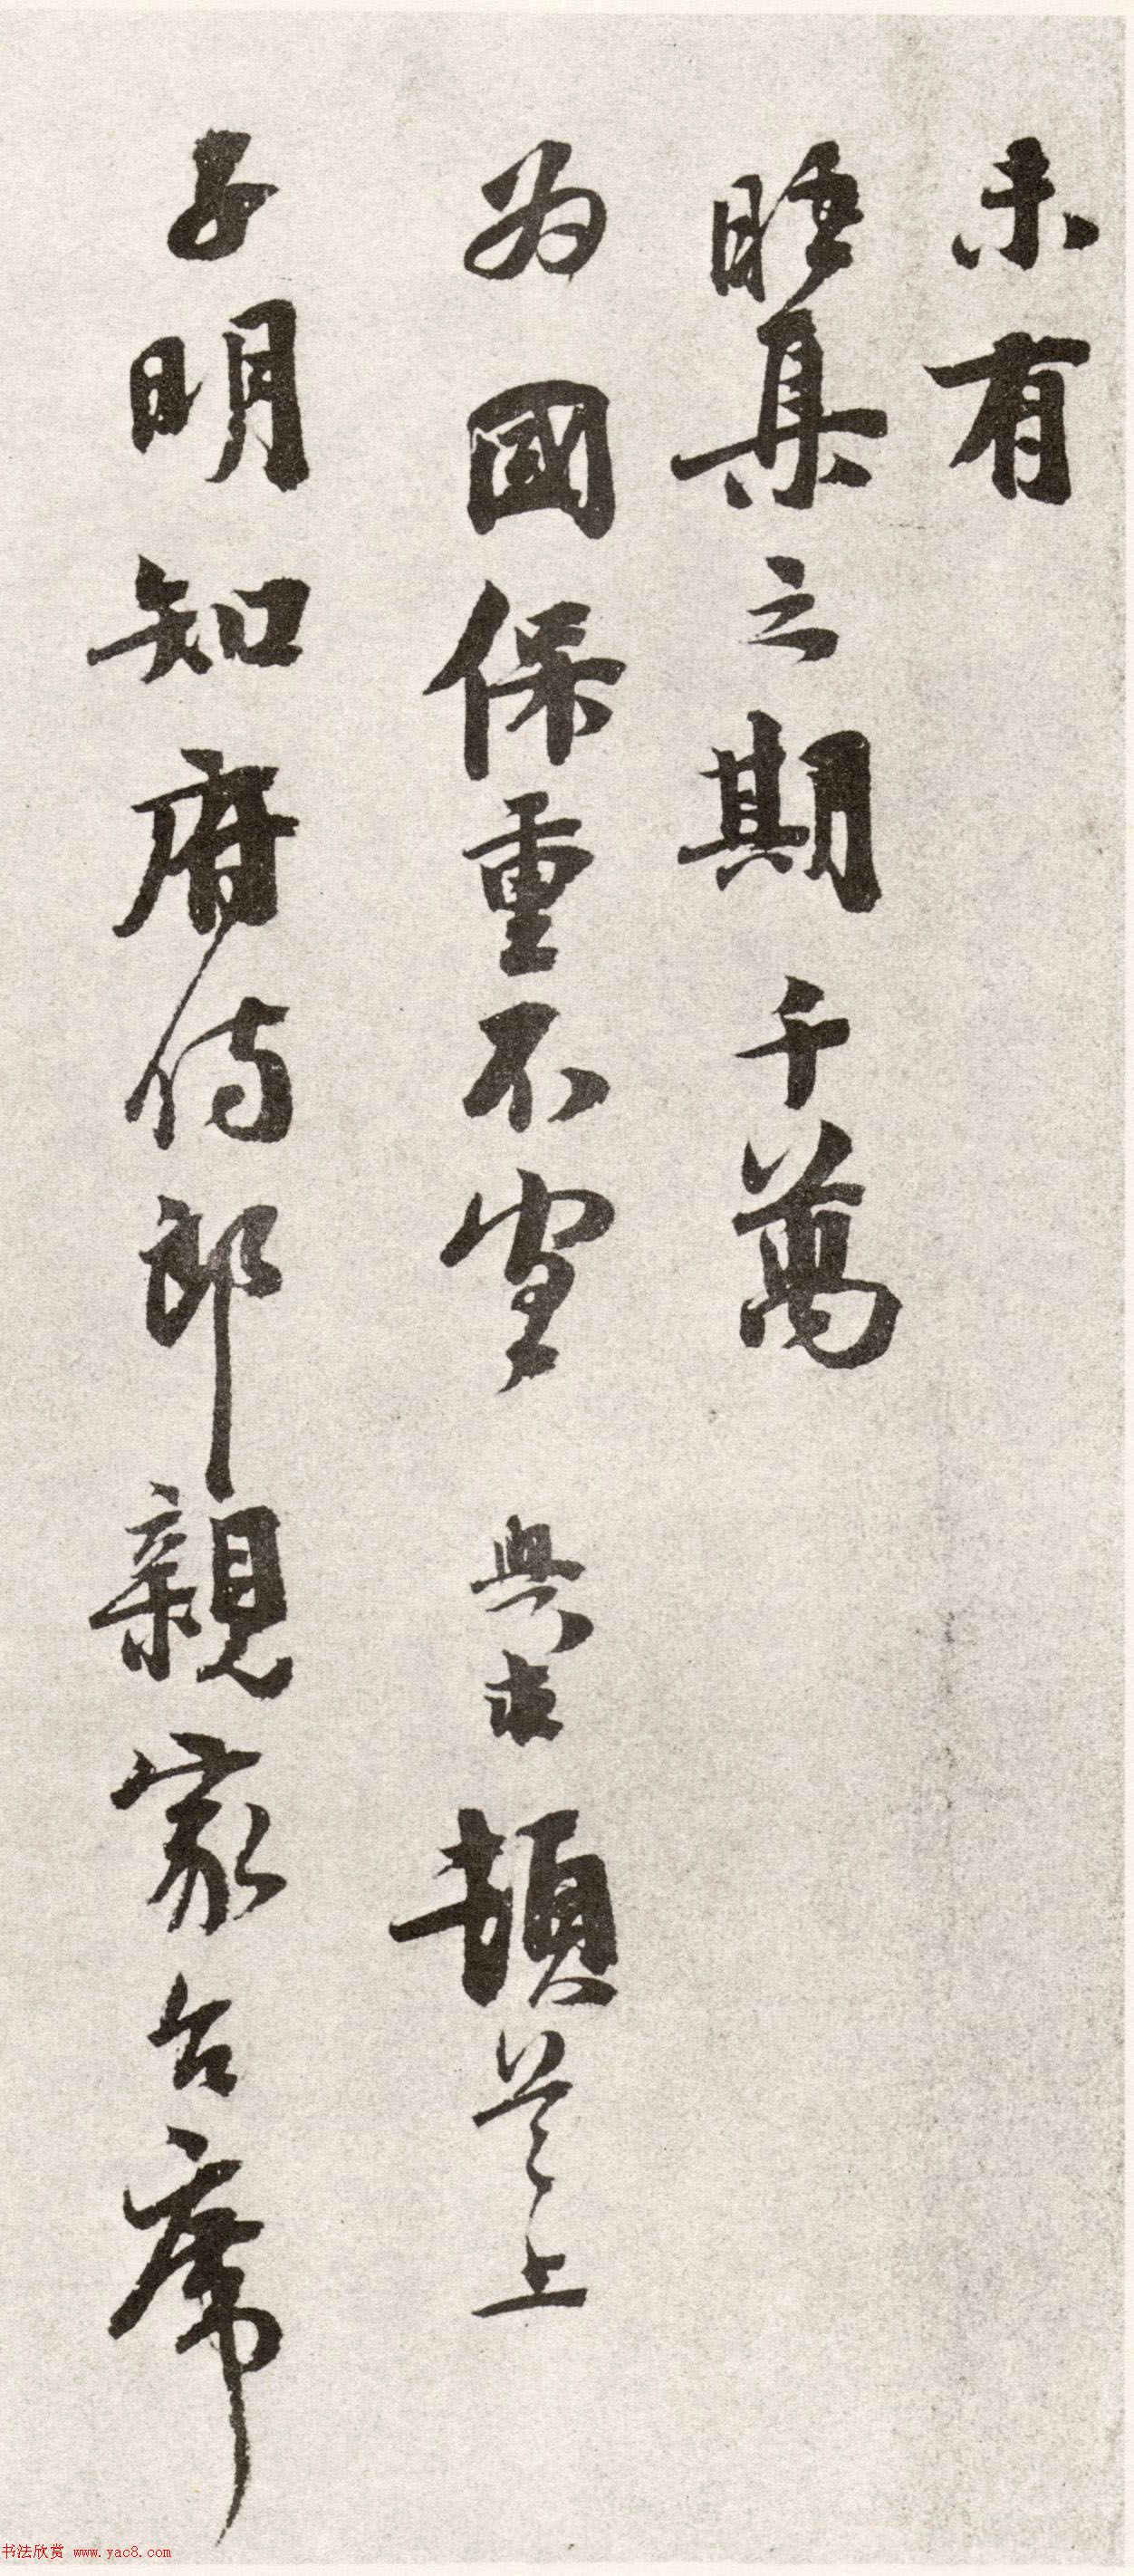 未有
晤集之期千萬
為國保重不宣 與求頓首上
子明知府侍郎親家台席
书法欣赏 www.yac8.com